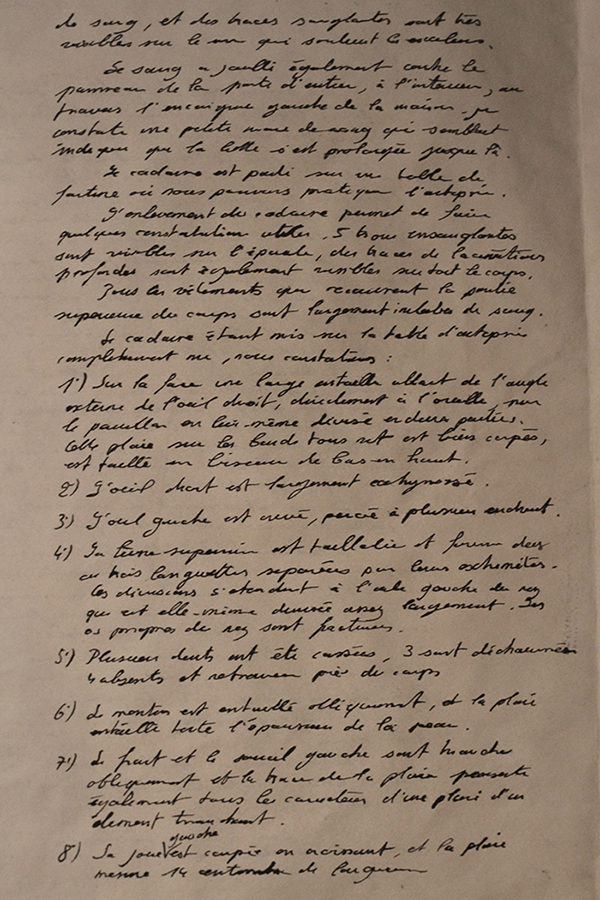 de sang, et des traces sanglantes sont très
visibles sur le mur qui soutient les escaliers.
Le sang a jailli également contre le
panneau de la porte d'entrée, à l'intérieur, au
travers l'encoignure gauche de la maison. je
constate une petite mare de sang qui semblent
indiquer que la lutte s'est prolongée jusque là.
Le cadavre est placé sur une table de
fortune où nous pouvons pratiquer l'autopsie.
L'enlèvement du cadavre permet de faire
quelques constatations utiles. 5 trous ensanglantés
sont visibles sur l'épaule, des traces de lacérations
profondes sont également visibles sur tout le corps.
Tous les vêtements qui recouvrent la partie
supérieure du corps sont largement imbibés de sang.
Le cadavre étant mis sur la table d'autopsie
complètement nu, nous constatons :
1°) Sur la face une large entaille allant de l'angle
externe de l'oeil droit, directement à l'oreille,
le pavillon en lui-même divisé en deux parties.
Cette plaie sur les bords tous net est bien coupée,
est taillé en biseau de bas en haut.
2°) L'oeil droit est largement ecchymosé.
3°) L'oeil gauche est crevé, percé à plusieurs endroit.
4°) La lèvre supérieure est tailladée et forme deux
ou trois languettes séparées par leurs extrémités.
Les divisions s'étendent à l'aile gauche du nez
qui est elle-même divisée assez largement. Les
os propres du nez sont fracturés.
5°) Plusieurs dents ont été cassées, 3 sont déchaussées
4 absents et retrouvées près du corps
6°) Le menton est entaillé obliquement, et la plaie
entaille toute l'épaisseur de la peau.
7°) Le front et le sourcil gauche sont tranchés
obliquement et la trace de la plaie présente
également tous les caractères d'une plaie d'un
élément tranchant.
8°) La joue gauche est coupée en croissant, et la plaie
mesure 14 centimètres de longueur